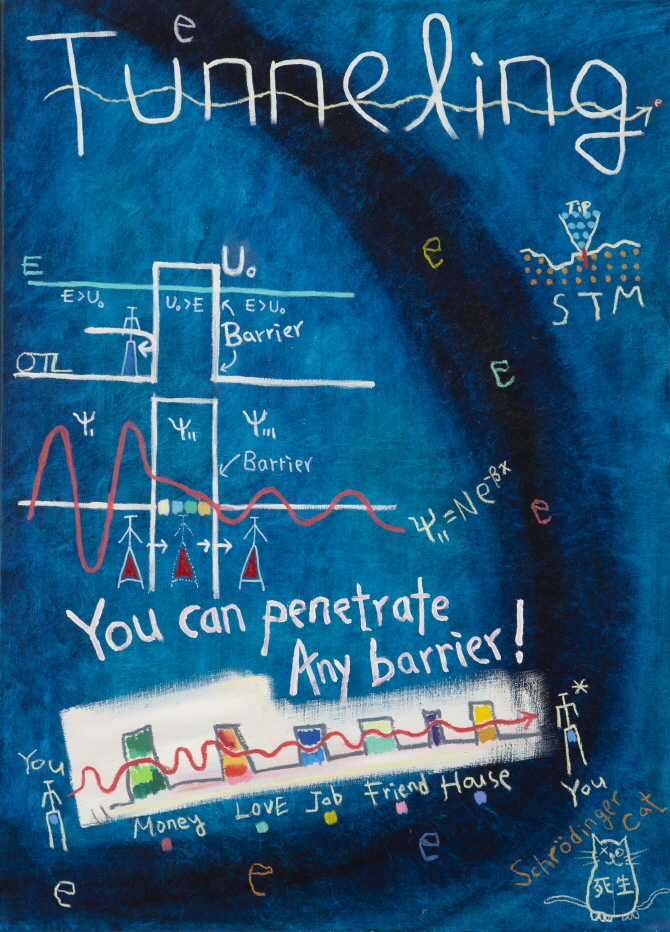 e
Tunneling
e
Tip
STM
e
E
U₀
E>U₀
U₀>E
E>U₀
Barrier
e
Ψ_I
Ψ_II
Ψ_III
Barrier
Ψ_II=Ne^-βx
e
You can penetrate
Any barrier!
*
You
You
Money
LOVE
Job
Friend
House
Schrödinger
Cat
死生
e
e
e